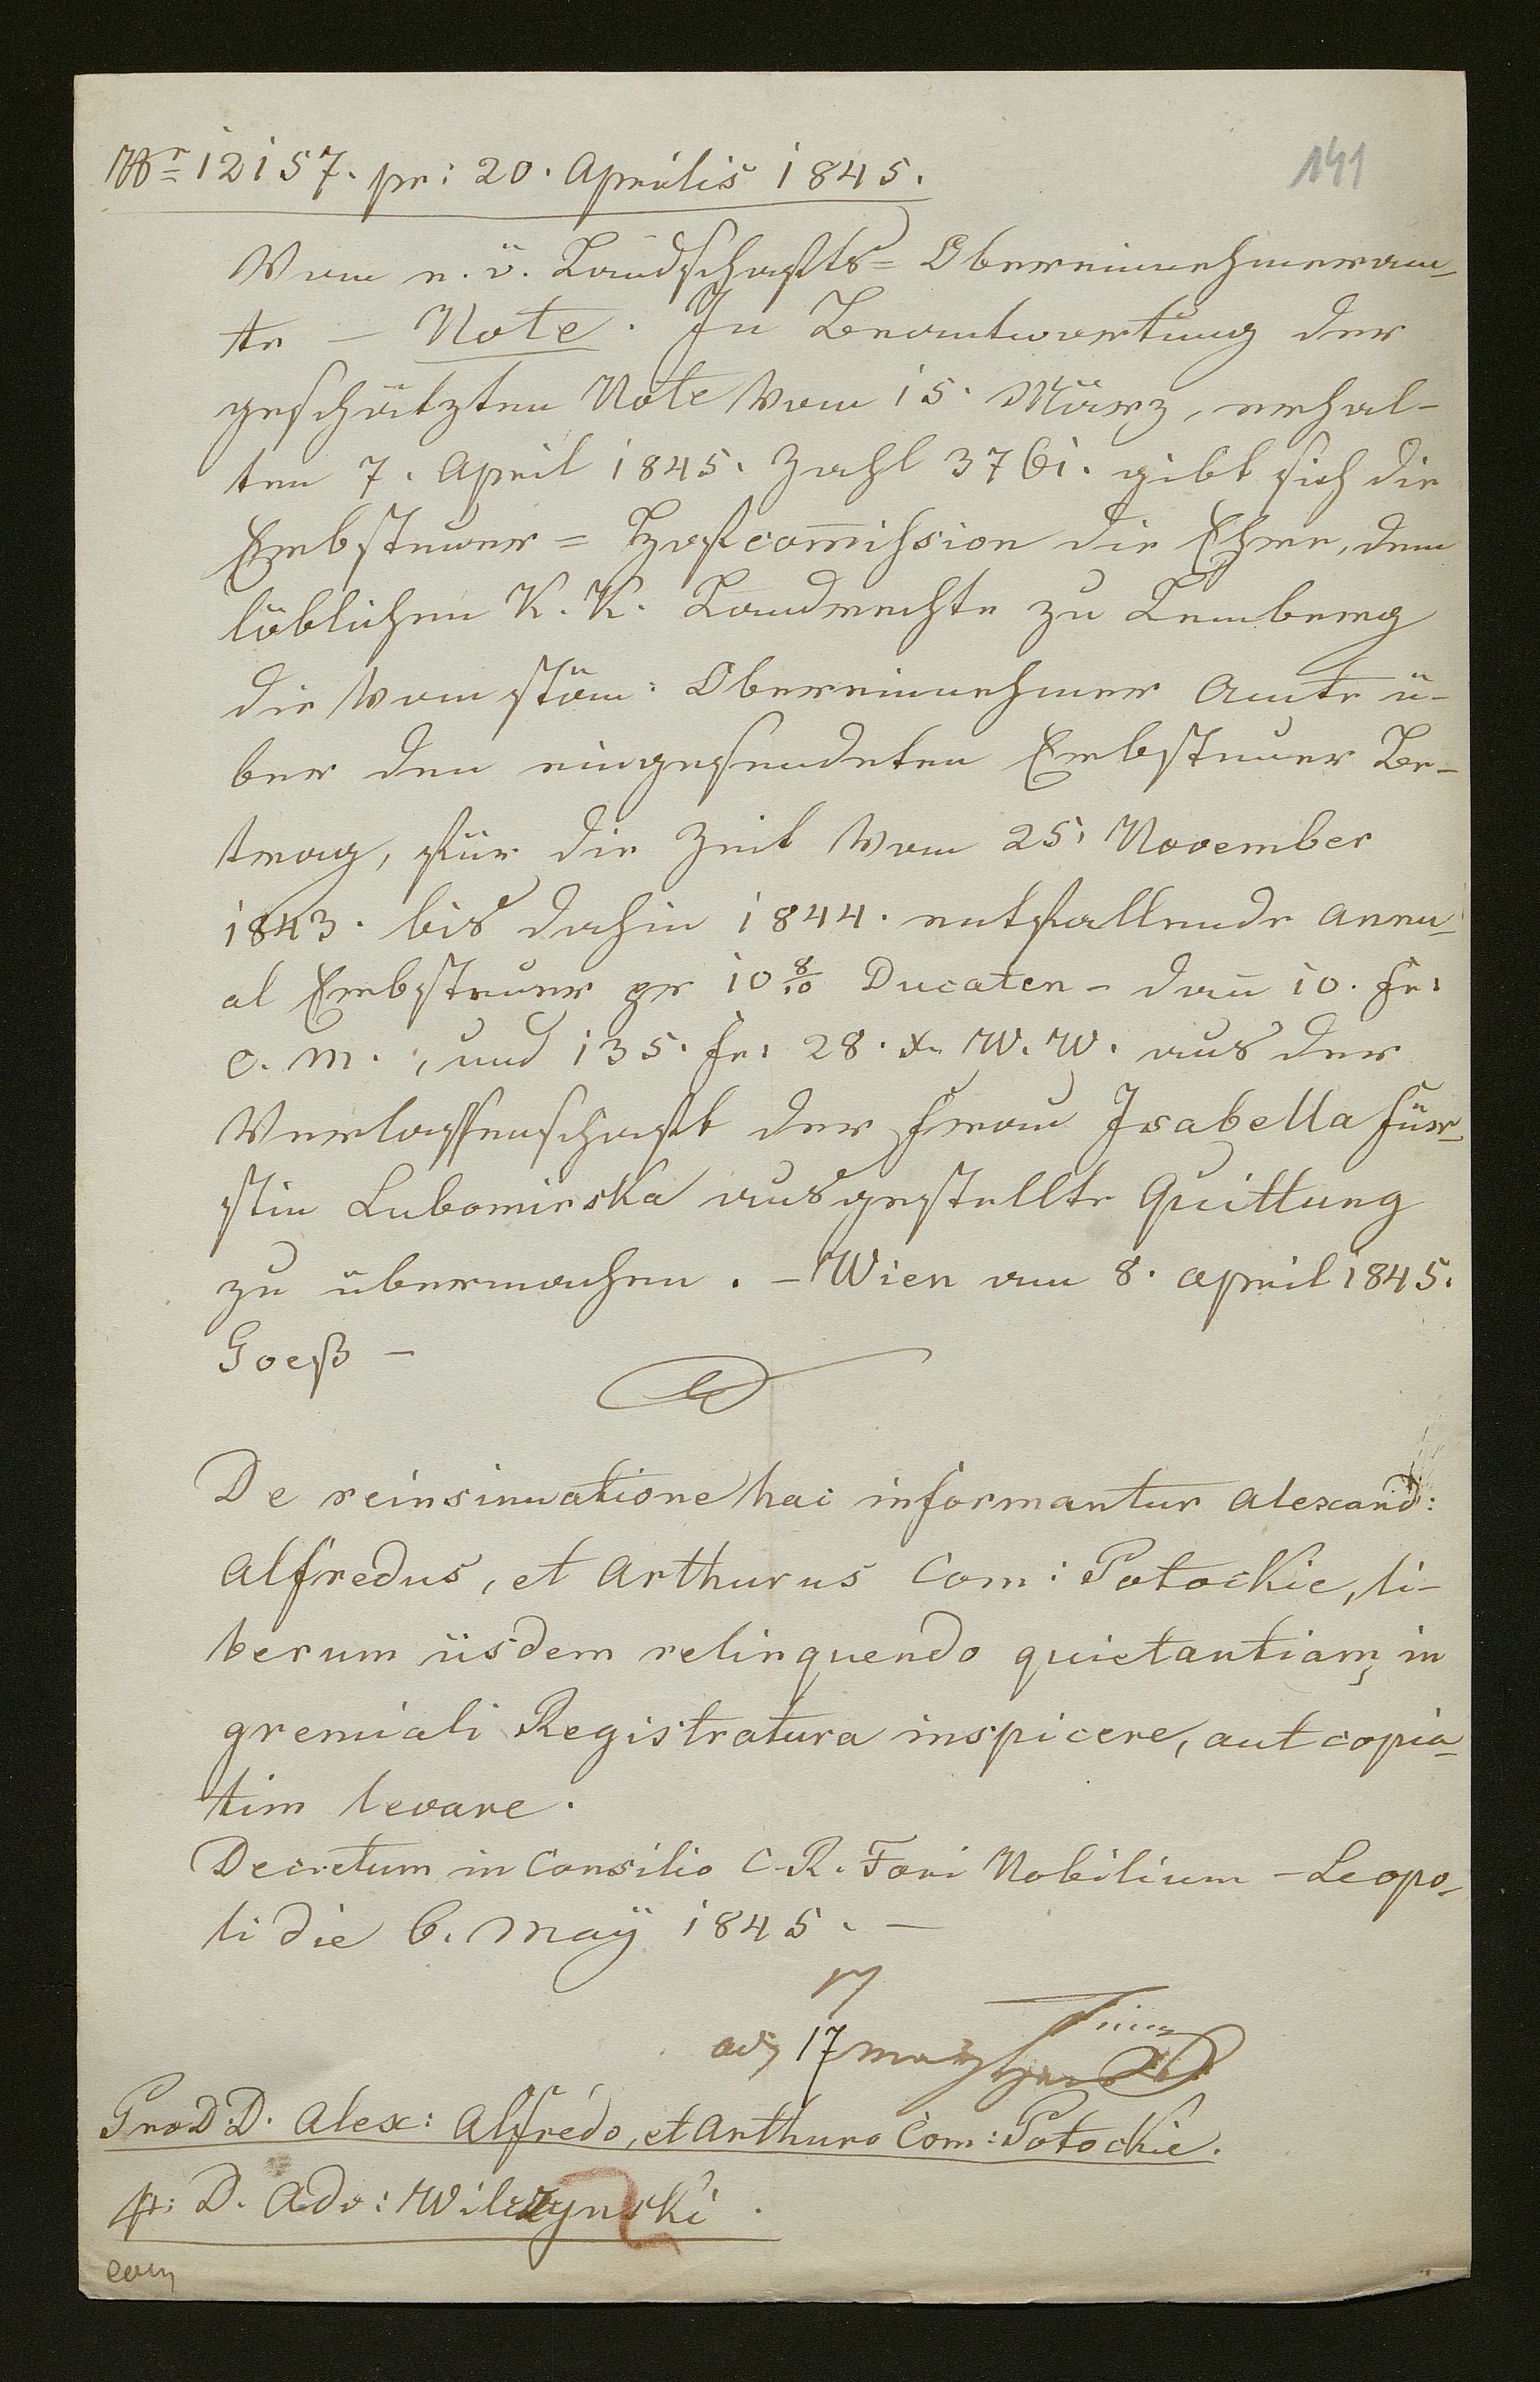 Nr 12157. pr: 20. Aprilis 1845.
141
Vom n. ö. Landschafts= Obereinnehmeram-
te — Note. In Beantwortung der
geschätzten Note vom 15. März, erhal-
ten 7. April 1845. Zahl 3761. gibt sich die
Erbsteuer= Hofcom̄ission die Ehre, dem
löblichen K. K. Landrechte zu Lemberg
die vom stän: Obereinnehmer Amte ü-
ber den eingesendeten Erbsteuer Be-
trag, für die Zeit vom 25. November
1843. bis dahin 1844. entfallende Annu-
al Erbsteuer pr 10 8/10 Ducaten - dan̄ 10. fr:
C. M., und 135. fr: 28. x. W. W. aus der
Verlassenschaft der Frau Isabella Für-
stin Lubomirska ausgestellte Quittung
zu übermachen. — Wien am 8. April 1845.
Goeß —
De reinsinuatione hac informantur Alexand:
Alfredus, et Arthurus Com: Potockie, li-
berum iisdem relinquendo quietantiam, in
gremiali Registratura inspicere, aut copia-
tim levare.
Decretum in Consilio C. R. Fori Nobilium - Leopo-
li die 6. May 1845. —
17 may
Pro D. D. Alex: Alfredo, et Arthuro Com: Potockie.
p: D. Adv: Wilczynski.